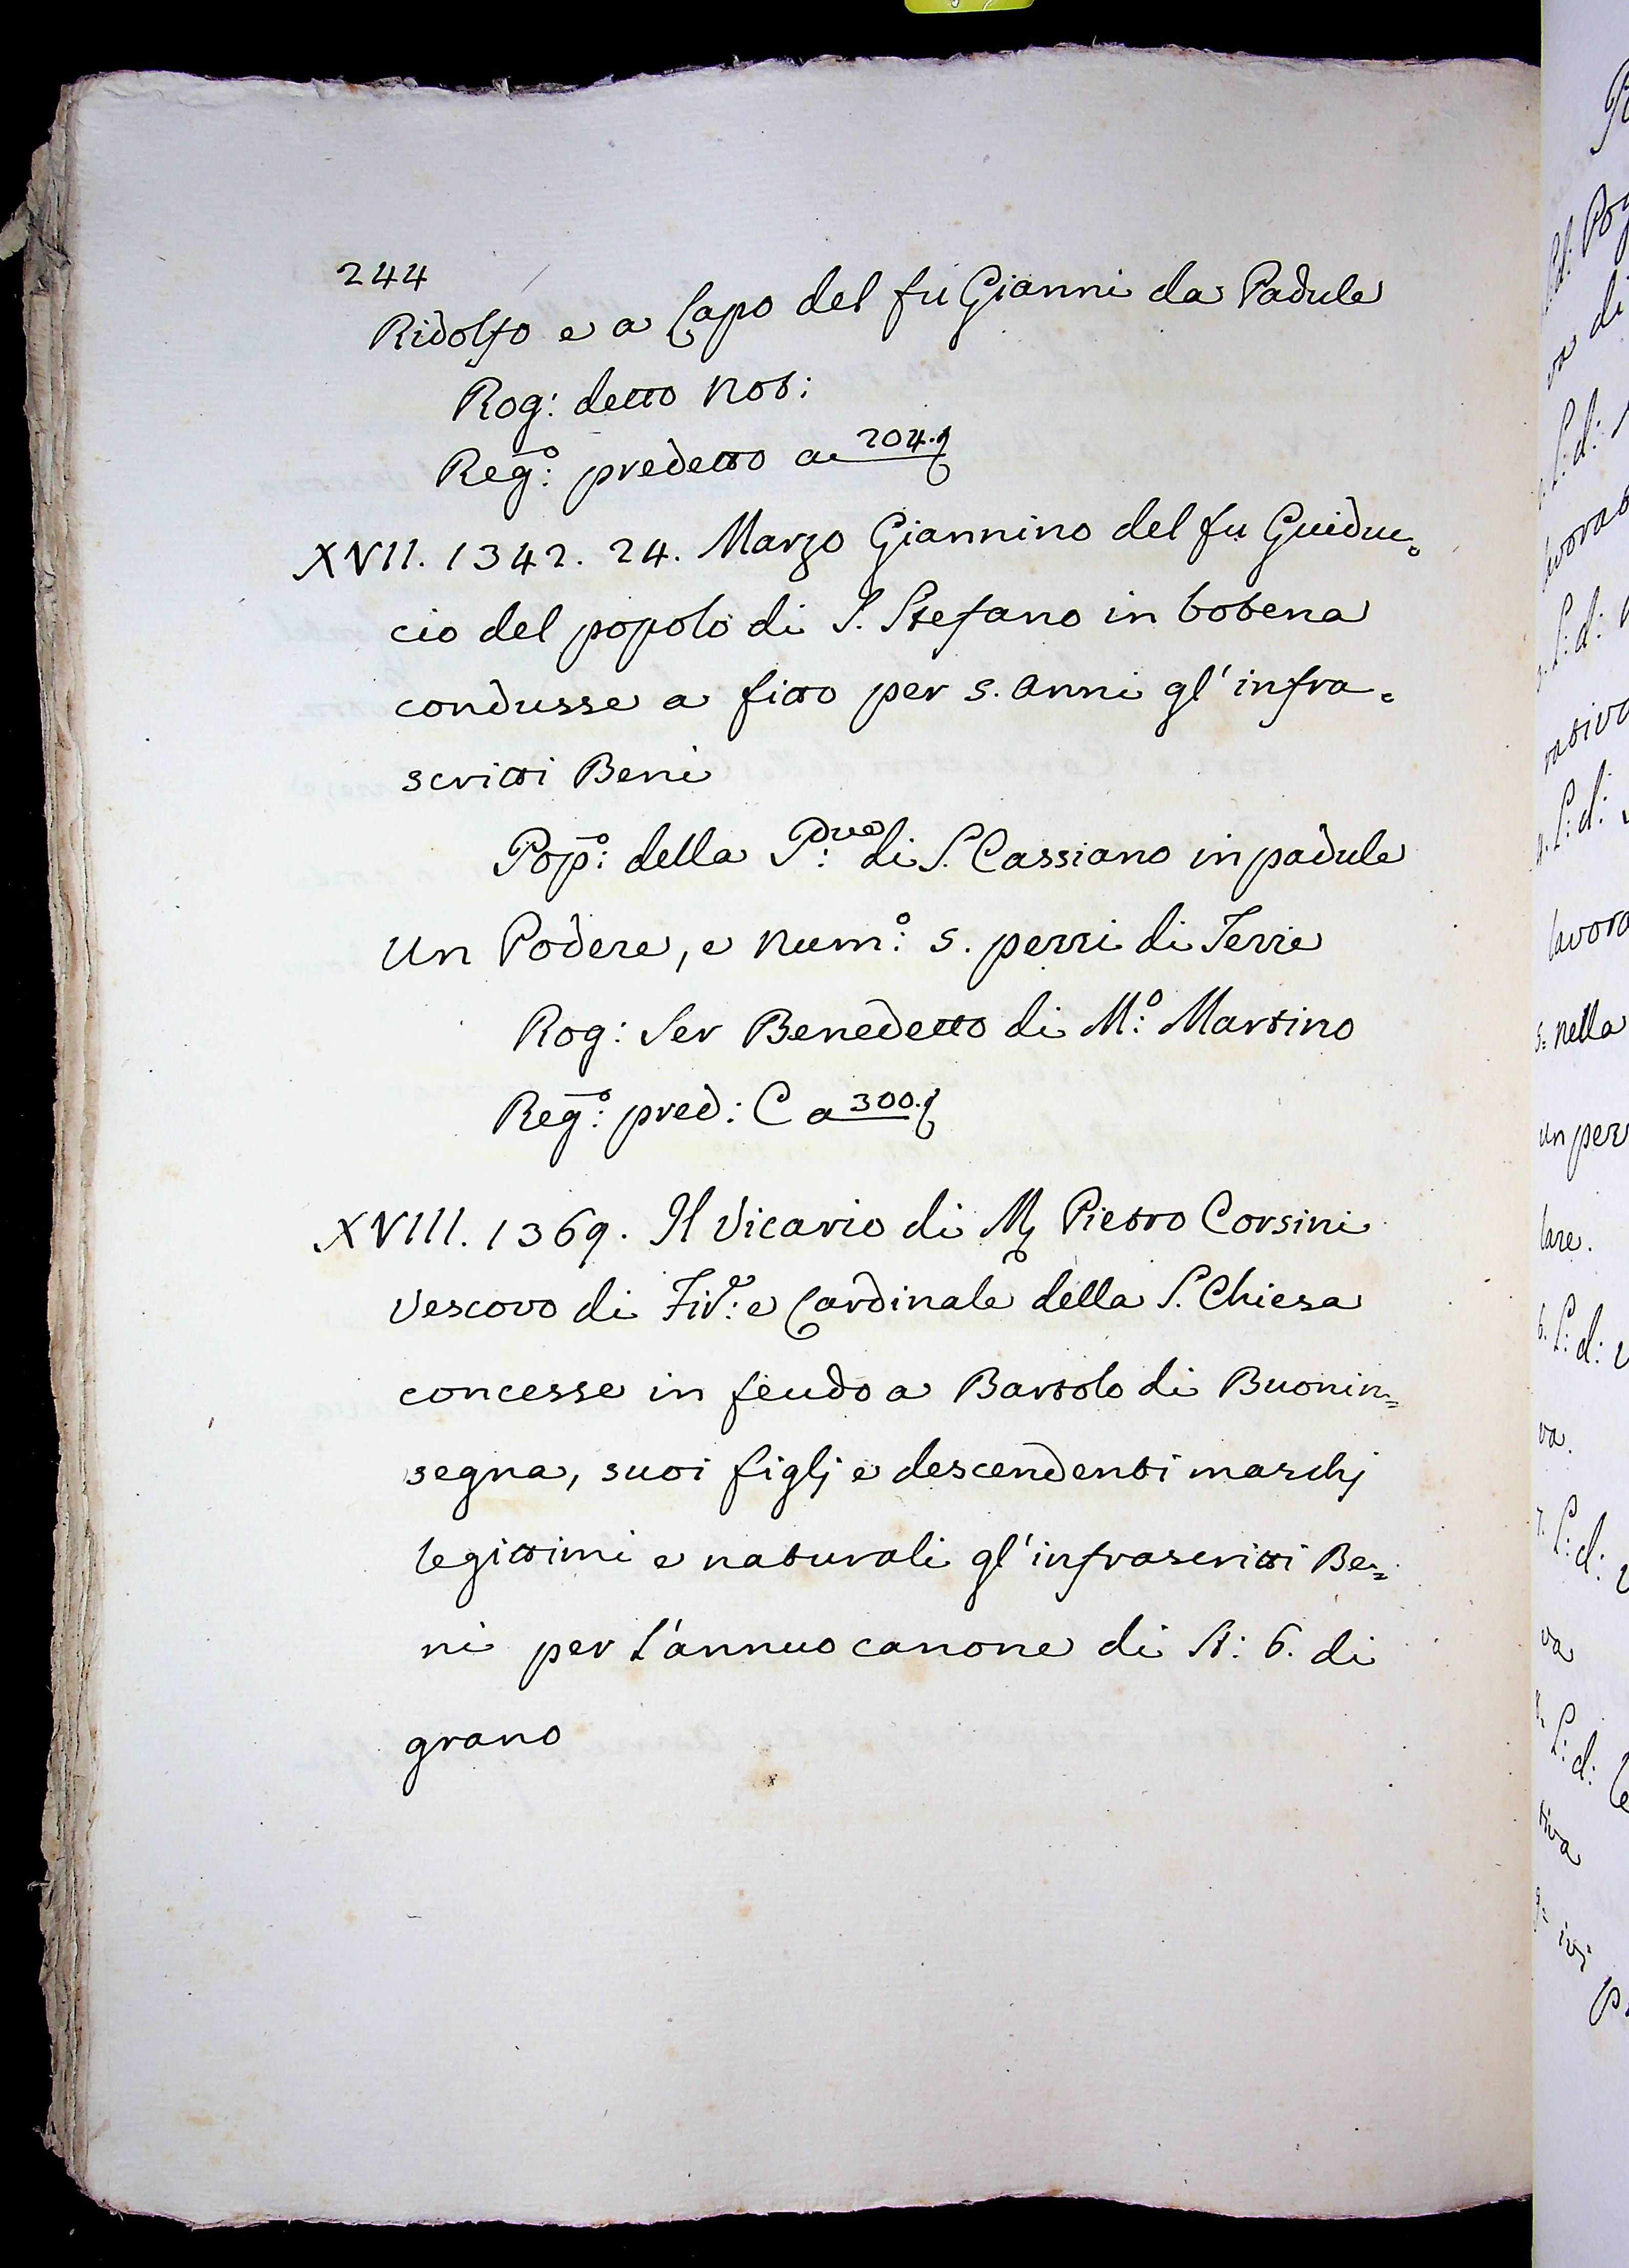 244
Ridolfo e a Lapo del fu Gianni da Padule
Rog: detto Not:
Reg.º: predetto a 204.
XVII. 1342. 24. Marzo Giannino del fu Guiduc=
cio del popolo di S. Stefano in botena
condusse a fitto per 5. anni gl'infra=
scritti Beni
Pop.º: della P.ve: di S. Cassiano in padule
Un Podere, e num.º: 5. pezzi di Terre
Rog: Ser Benedetto di M.º: Martino
Reg.º: pred: C a 300.
XVIII. 1369. Il Vicario di M. Pietro Corsini
Vescovo di Fir.e: e Cardinale della S. Chiesa
concesse in feudo a Bartolo di Buonin=
segna, suoi figlj e descendenti maschj
legittimi e naturali gl'infrascritti Be=
ni per l'annuo canone di St: 6. di
grano
S: d:
lavora
5. nella
un pez
lare.
6. S: d:
va.
7. S: d:
va
S: d:
tiva